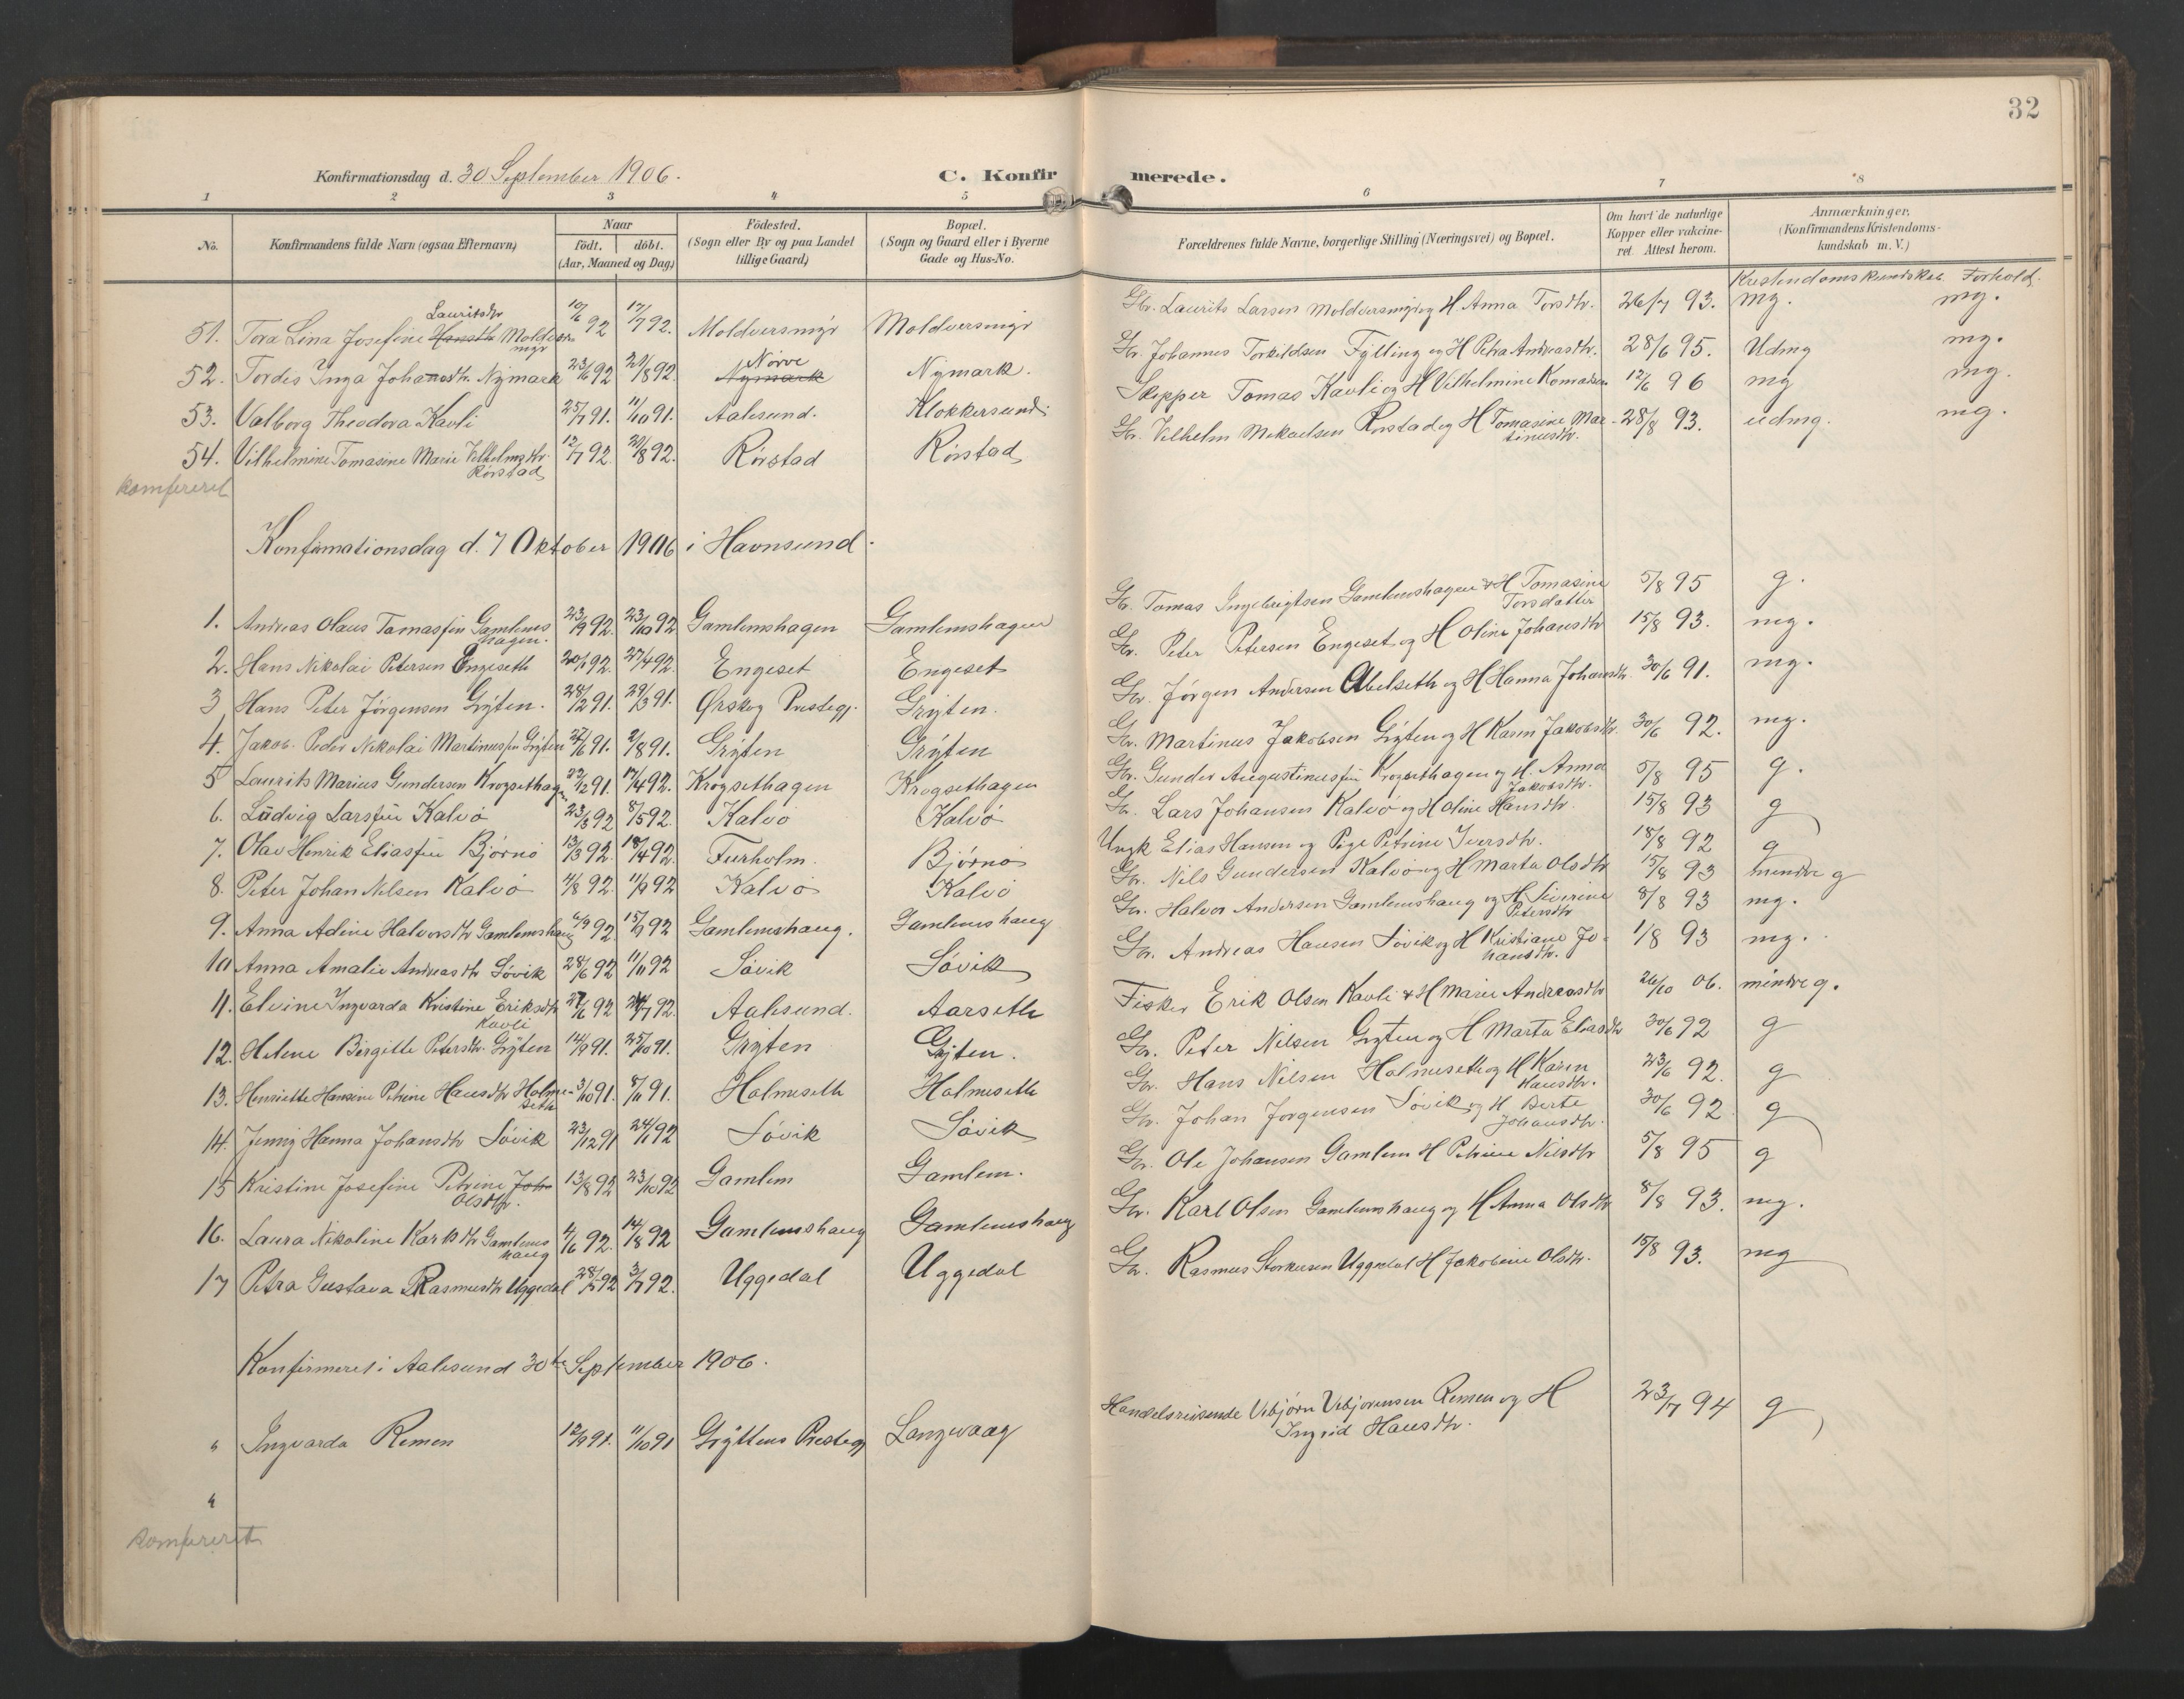 32
Konfirmationsdag d. 30 September 1906.
C. Konfirmerede.
1 2 3 4 5 6 7 8
No.
Konfirmandens fulde Navn (ogsaa Efternavn)
Naar
födt. döbt.
(Aar, Maaned og Dag)
Födested.
(Sogn eller By og paa Landet
tillige Gaard)
Bopæl.
(Sogn og Gaard eller i Byerne
Gade og Hus-No.
Forældrenes fulde Navne, borgerlige Stilling (Næringsvei) og Bopæl.
Om havt de naturlige
Kopper eller vakcine-
ret. Attest herom.
Anmærkninger.
(Konfirmandens Kristendoms-
kundskab m. V.)
Kristendomskundskab Forhold.
51. Tora Lina Josefine Hansdtr Lauritsdtr Moldversmyr 10/6 92 17/7 92. Moldversmyr Moldversmyr Gbr. Laurits Larsen Moldversmyr og H Anna Torsdtr. 26/7 93. mg. mg.
52. Tordis Inga Johansdtr. Nymark 23/6 92 21/8 92. Nymark Nørve Nymark. Gbr. Johannes Torkildsen Fylling og H Petra Andreasdtr. 28/6 95. Udmg mg.
53. Valborg Theodora Kavli 25/7 91. 11/10 91. Aalesund. Klokkersund. Skepper Tomas Kavli og H Vilhelmine Konradsen 12/6 96 mg mg.
54. Vilhelmine Tomasine Marie Vilhelmsdtr. Rörstad 12/7 92. 21/8 92. Rörstad Rörstad Gbr. Vilhelm Mikaelsen Rörstad og H Tomasine Martinusdtr. 28/8 93. udmg. mg.
komfereret
Konfirmationsdag d. 7 Oktober 1906 i Havnsund.
1. Andreas Olaus Tomassen Gamlemshagen. 23/9 92. 23/10 92 Gamlemshagen Gamlemshagen Gbr. Tomas Ingebrigtsen Gamlemshagen & H Tomasine Torsdatter 5/8 95 g.
2. Hans Nikolai Petersen Engeseth 20/1 92. 27/4 92. Engeset Engeset Gbr. Peter Petersen Engeset og H Oline Johansdtr 15/8 93. mg.
3 Hans Peter Jörgensen Gryten. 28/2 91. 29/3 91. Ørskog Prestegj. Gryten. Gbr. Jörgen Andersen Abelseth og H Hanna Johansdtr. 30/6 91. mg.
4. Jakob Peder Nikolai Martinussen Gryten 27/6 91. 2/8 91. Gryten Gryten Gbr. Martinus Jakobsen Gryten og H Karen Jakobsdtr. 30/6 92. mg.
5 Laurits Marius Gundersen Krogsethagen 22/12 91. 17/4 92. Krogsethagen Krogsethagen Gbr. Gunder Augustinussen Krogsethagen og H. Anna Jakobsdtr. 5/8 95 g.
6. Ludvig Larssen Kalvö 23/3 92 8/5 92. Kalvö Kalvö Gbr. Lars Johansen Kalvö og H Oline Hansdtr. 15/8 93 g
7. Olav Henrik Eliassen Björnö 13/3 92. 18/4 92. Furholm. Björnö Ungk Elias Hansen og Pige Petrine Iversdtr. 18/8 92 g
8. Peter Johan Nilsen Kalvö 4/8 92. 11/9 92 Kalvö Kalvö Gbr. Nils Gundersen Kalvö og H Marta Olsdtr 15/8 93 mindre g
9. Anna Adine Halvorsdtr Gamlemshaug 6/9 92. 15/9 92 Gamlemshaug. Gamlemshaug Gbr. Halvor Andersen Gamlemshaug og H Siverine Petersdtr 8/8 93 mg.
10 Anna Amalie Andreasdtr Sövik 28/6 92 11/11 92 Sövik Sövik Gbr. Andreas Hansen Sövik og H Kristiane Johansdtr. 1/8 93 mg.
11. Elvine Ingvarda Kristine Eriksdtr Kavli 27/6 92 24/7 92. Aalesund. Aarseth Fisker Erik Olsen Kavli & H Marie Andreasdtr 26/10 06. mindre g.
12. Helene Birgitte Petersdtr. Gryten 14/9 91. 25/10 91. Gryten Gryten. Gbr. Peter Nilsen Gryten og H Marta Eliasdtr 30/6 92 g
13. Henriette Hansine Petrine Hansdtr Holmeseth 3/10 91. 8/11 91. Holmeseth Holmeseth Gbr. Hans Nilsen Holmeseth og H Karen Hansdtr. 23/6 92. g
14. Jenny Hanna Johansdtr Sövik 23/12 91 24/1 92 Sövik Sövik Gbr. Johan Jorgensen Sövik og H Berte Johansdtr. 30/6 92. g
15 Kristine Josefine Petrine Joh Olsdtr. 13/8 92 23/10 92 Gamlem Gamlem. Gbr. Ole Johansen Gamlem H Petrine Nilsdtr 5/8 95 g
16. Laura Nikoline Karlsdtr Gamlemshaug 4/6 92. 14/8 92 Gamlemshaug Gamlemshaug Gbr. Karl Olsen Gamlemshaug og H Anna Olsdtr 8/8 93. mg.
17 Petra Gustava Rasmusdtr Uggedal 28/5 92 3/7 92. Uggedal Uggedal Gbr. Rasmus Storkersen Uggedal H Jakobine Olsdtr. 15/8 93. mg
Konfirmeret i Aalesund 30te September 1906.
" Ingvarda Remen 12/9 91. 11/10 91 Gryttens Prestegj Langevaag Handelsreisende Vebjörn Vebjörnsen Remen og H Ingrid Hansdtr. 23/7 94 g
"
komfereret